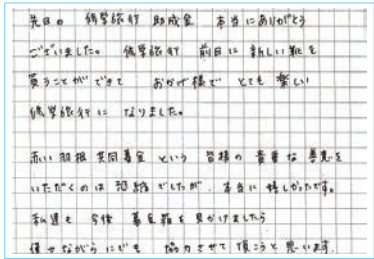 先日の 修学旅行 助成金 本当にありがとう
ございました。 修学旅行 前日に 新しい靴を
買うことができて おかげ様で とても 楽しい
修学旅行に なりました。
赤い羽根 共同募金 という 皆様の 貴重な 善意を
いただくのは 恐縮でしたが、本当に 嬉しかったです。
私達も 今後 募金箱を 見かけましたら
僅かながらにでも 協力させて 頂こうと 思います。